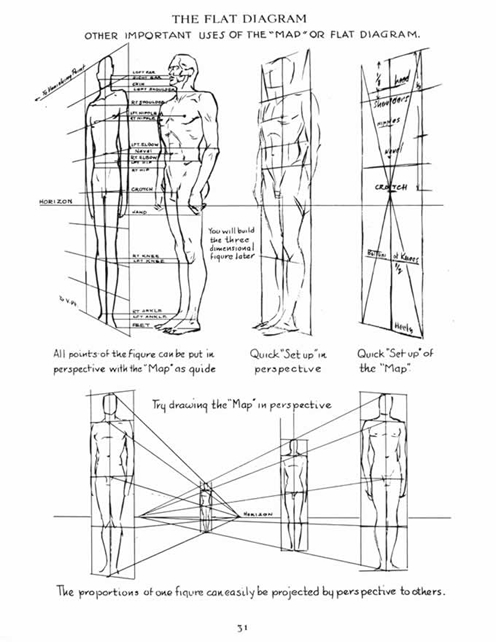 THE FLAT DIAGRAM
OTHER IMPORTANT USES OF THE "MAP" OR FLAT DIAGRAM.
To Vanishing Point
LEFT EAR
RIGHT EAR
CHIN
LEFT SHOULDER
RT SHOULDER
LFT NIPPLE
RT NIPPLE
LFT ELBOW
NAVEL
RT ELBOW
LFT HIP
RT HIP
CROTCH
HORIZON
HAND
RT KNEE
LEFT KNEE
To V.Pt.
RT ANKLE
LFT ANKLE
FEET
You will build
the three
dimensional
figure later
head
Shoulders
nipples
Navel
CROTCH
Bottom of Knees
1/2
Heels
All points of the figure can be put in
perspective with the "Map" as guide
Quick "Set up" in
perspective
Quick "Set up" of
the "Map".
Try drawing the "Map" in perspective
HORIZON
The proportions of one figure can easily be projected by perspective to others.
31